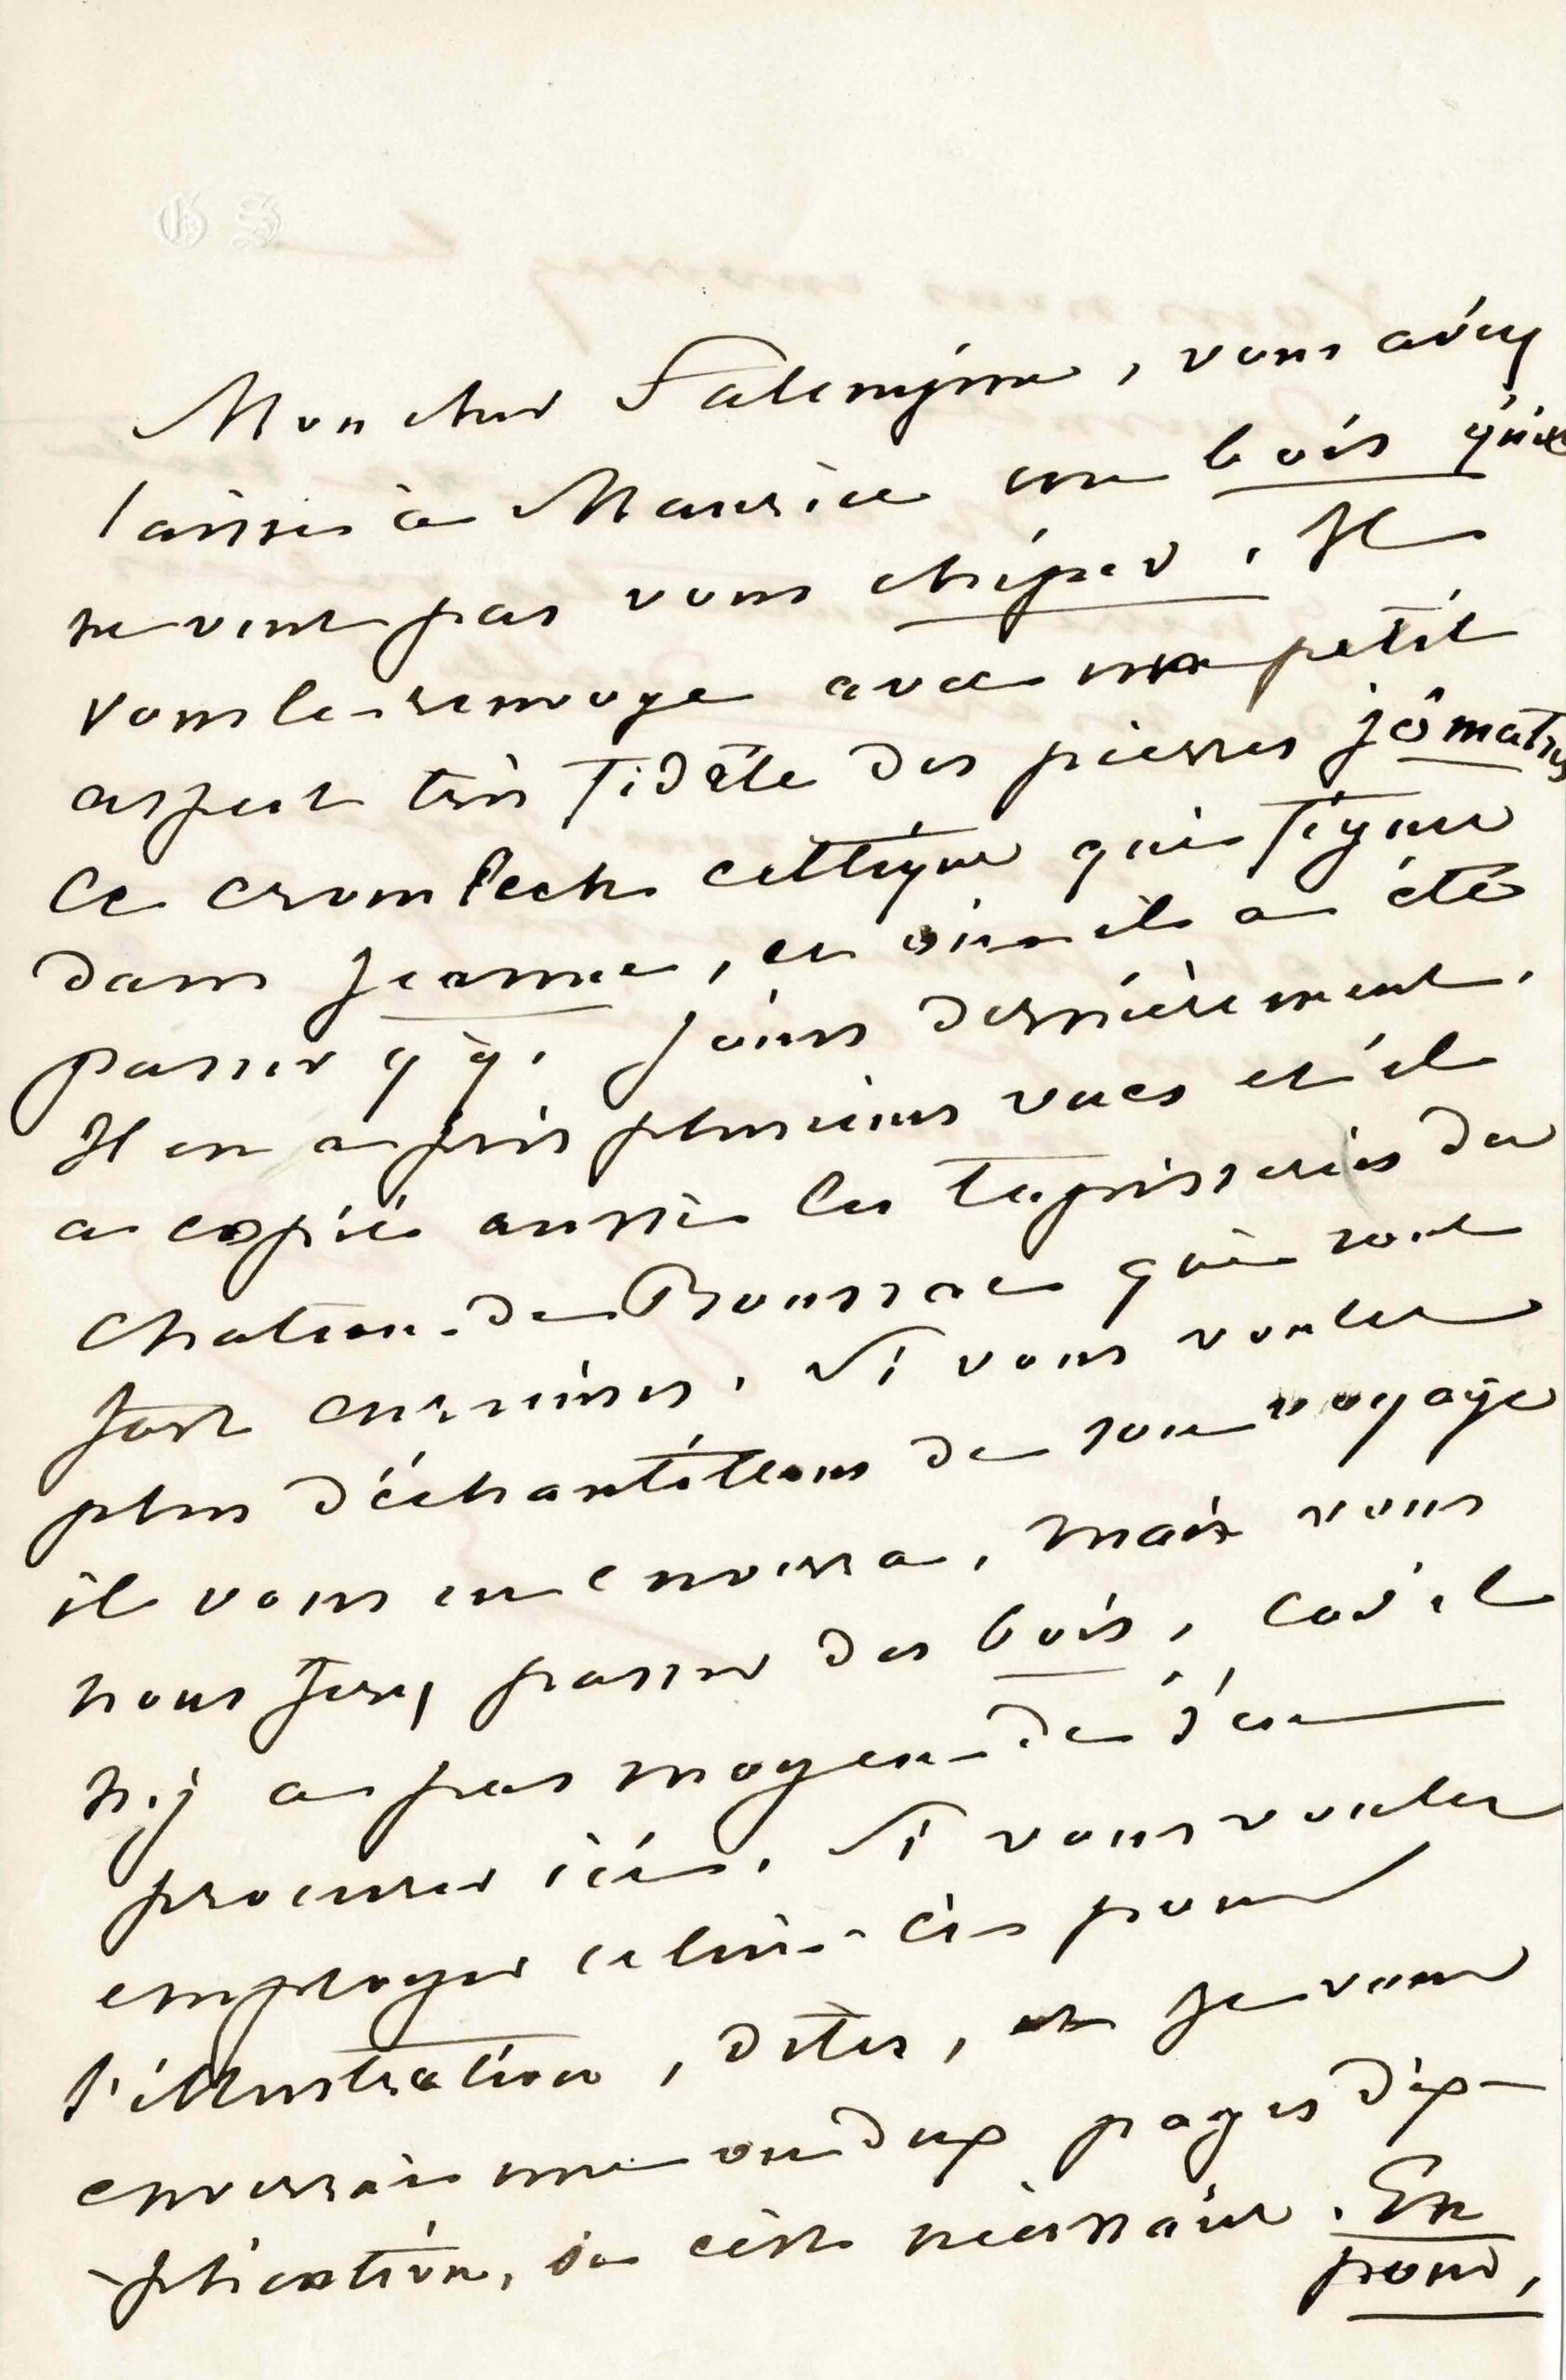 G S
Mon cher Falempin, vous avez
laissé à Maurice un bois qu'il
ne veut pas vous chiper. Il
vous le renvoye avec un petit
aspect très fidèle des pierres jômatres
ce cromlech celtique qui figure
dans Jeanne, et où il a été
passer qq. jours dernièrement.
Il en a pris plusieurs vues et il
a copié aussi les tapisseries du
chateau de Boussac qui sont
fort curieuses. Si vous voulez
plus d'échantillons de son voyage
il vous en enverra, mais vous
nous ferez passer des bois, car il
n'y a pas moyen de s'en
procurer ici. Si vous voulez
employer celui-ci pour
l'illustration, dites, et je vous
enverrai une ou deux pages d'ex-
-plication, si c'est nécessaire. En
pour,